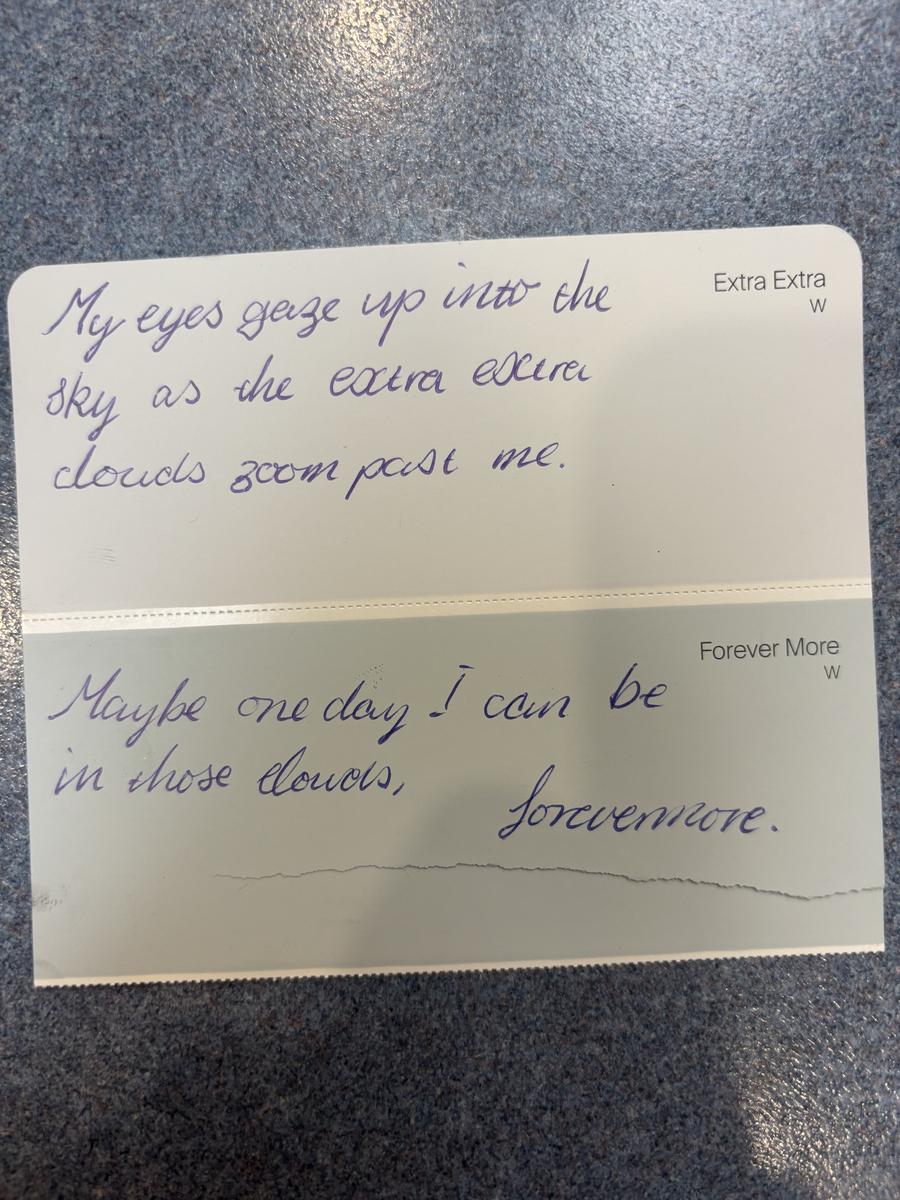 Extra Extra
W
My eyes gaze up into the
sky as the extra extra
clouds zoom past me.
Forever More
W
Maybe one day I can be
in those clouds,
forevermore.